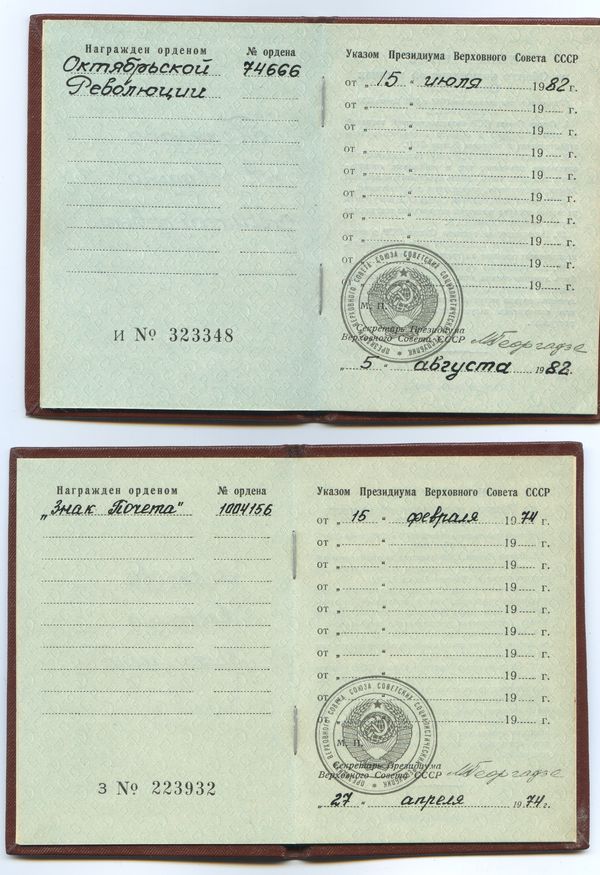 Награжден орденом № ордена
Октябрьской 74666
Революции
И № 323348
Указом Президиума Верховного Совета СССР
от „ 15 “ июля 1982 г.
от „ “ 19 г.
от „ “ 19 г.
от „ “ 19 г.
от „ “ 19 г.
от „ “ 19 г.
от „ “ 19 г.
от „ “ 19 г.
19 г.
ПРЕЗИДИУМ ВЕРХОВНОГО СОВЕТА СОЮЗА СОВЕТСКИХ СОЦИАЛИСТИЧЕСКИХ РЕСПУБЛИК
М. П.
Секретарь Президиума
Верховного Совета СССР М Георгадзе
„ 5 “ августа 1982 г.
Награжден орденом № ордена
„Знак Почета“ 1004156
З № 223932
Указом Президиума Верховного Совета СССР
от „ 15 “ февраля 1974 г.
от „ “ 19 г.
от „ “ 19 г.
от „ “ 19 г.
от „ “ 19 г.
от „ “ 19 г.
от „ “ 19 г.
от „ “ 19 г.
от „ “ 19 г.
ПРЕЗИДИУМ ВЕРХОВНОГО СОВЕТА СОЮЗА СОВЕТСКИХ СОЦИАЛИСТИЧЕСКИХ РЕСПУБЛИК
М. П.
Секретарь Президиума
Верховного Совета СССР М Георгадзе
„ 27 “ апреля 1974 г.